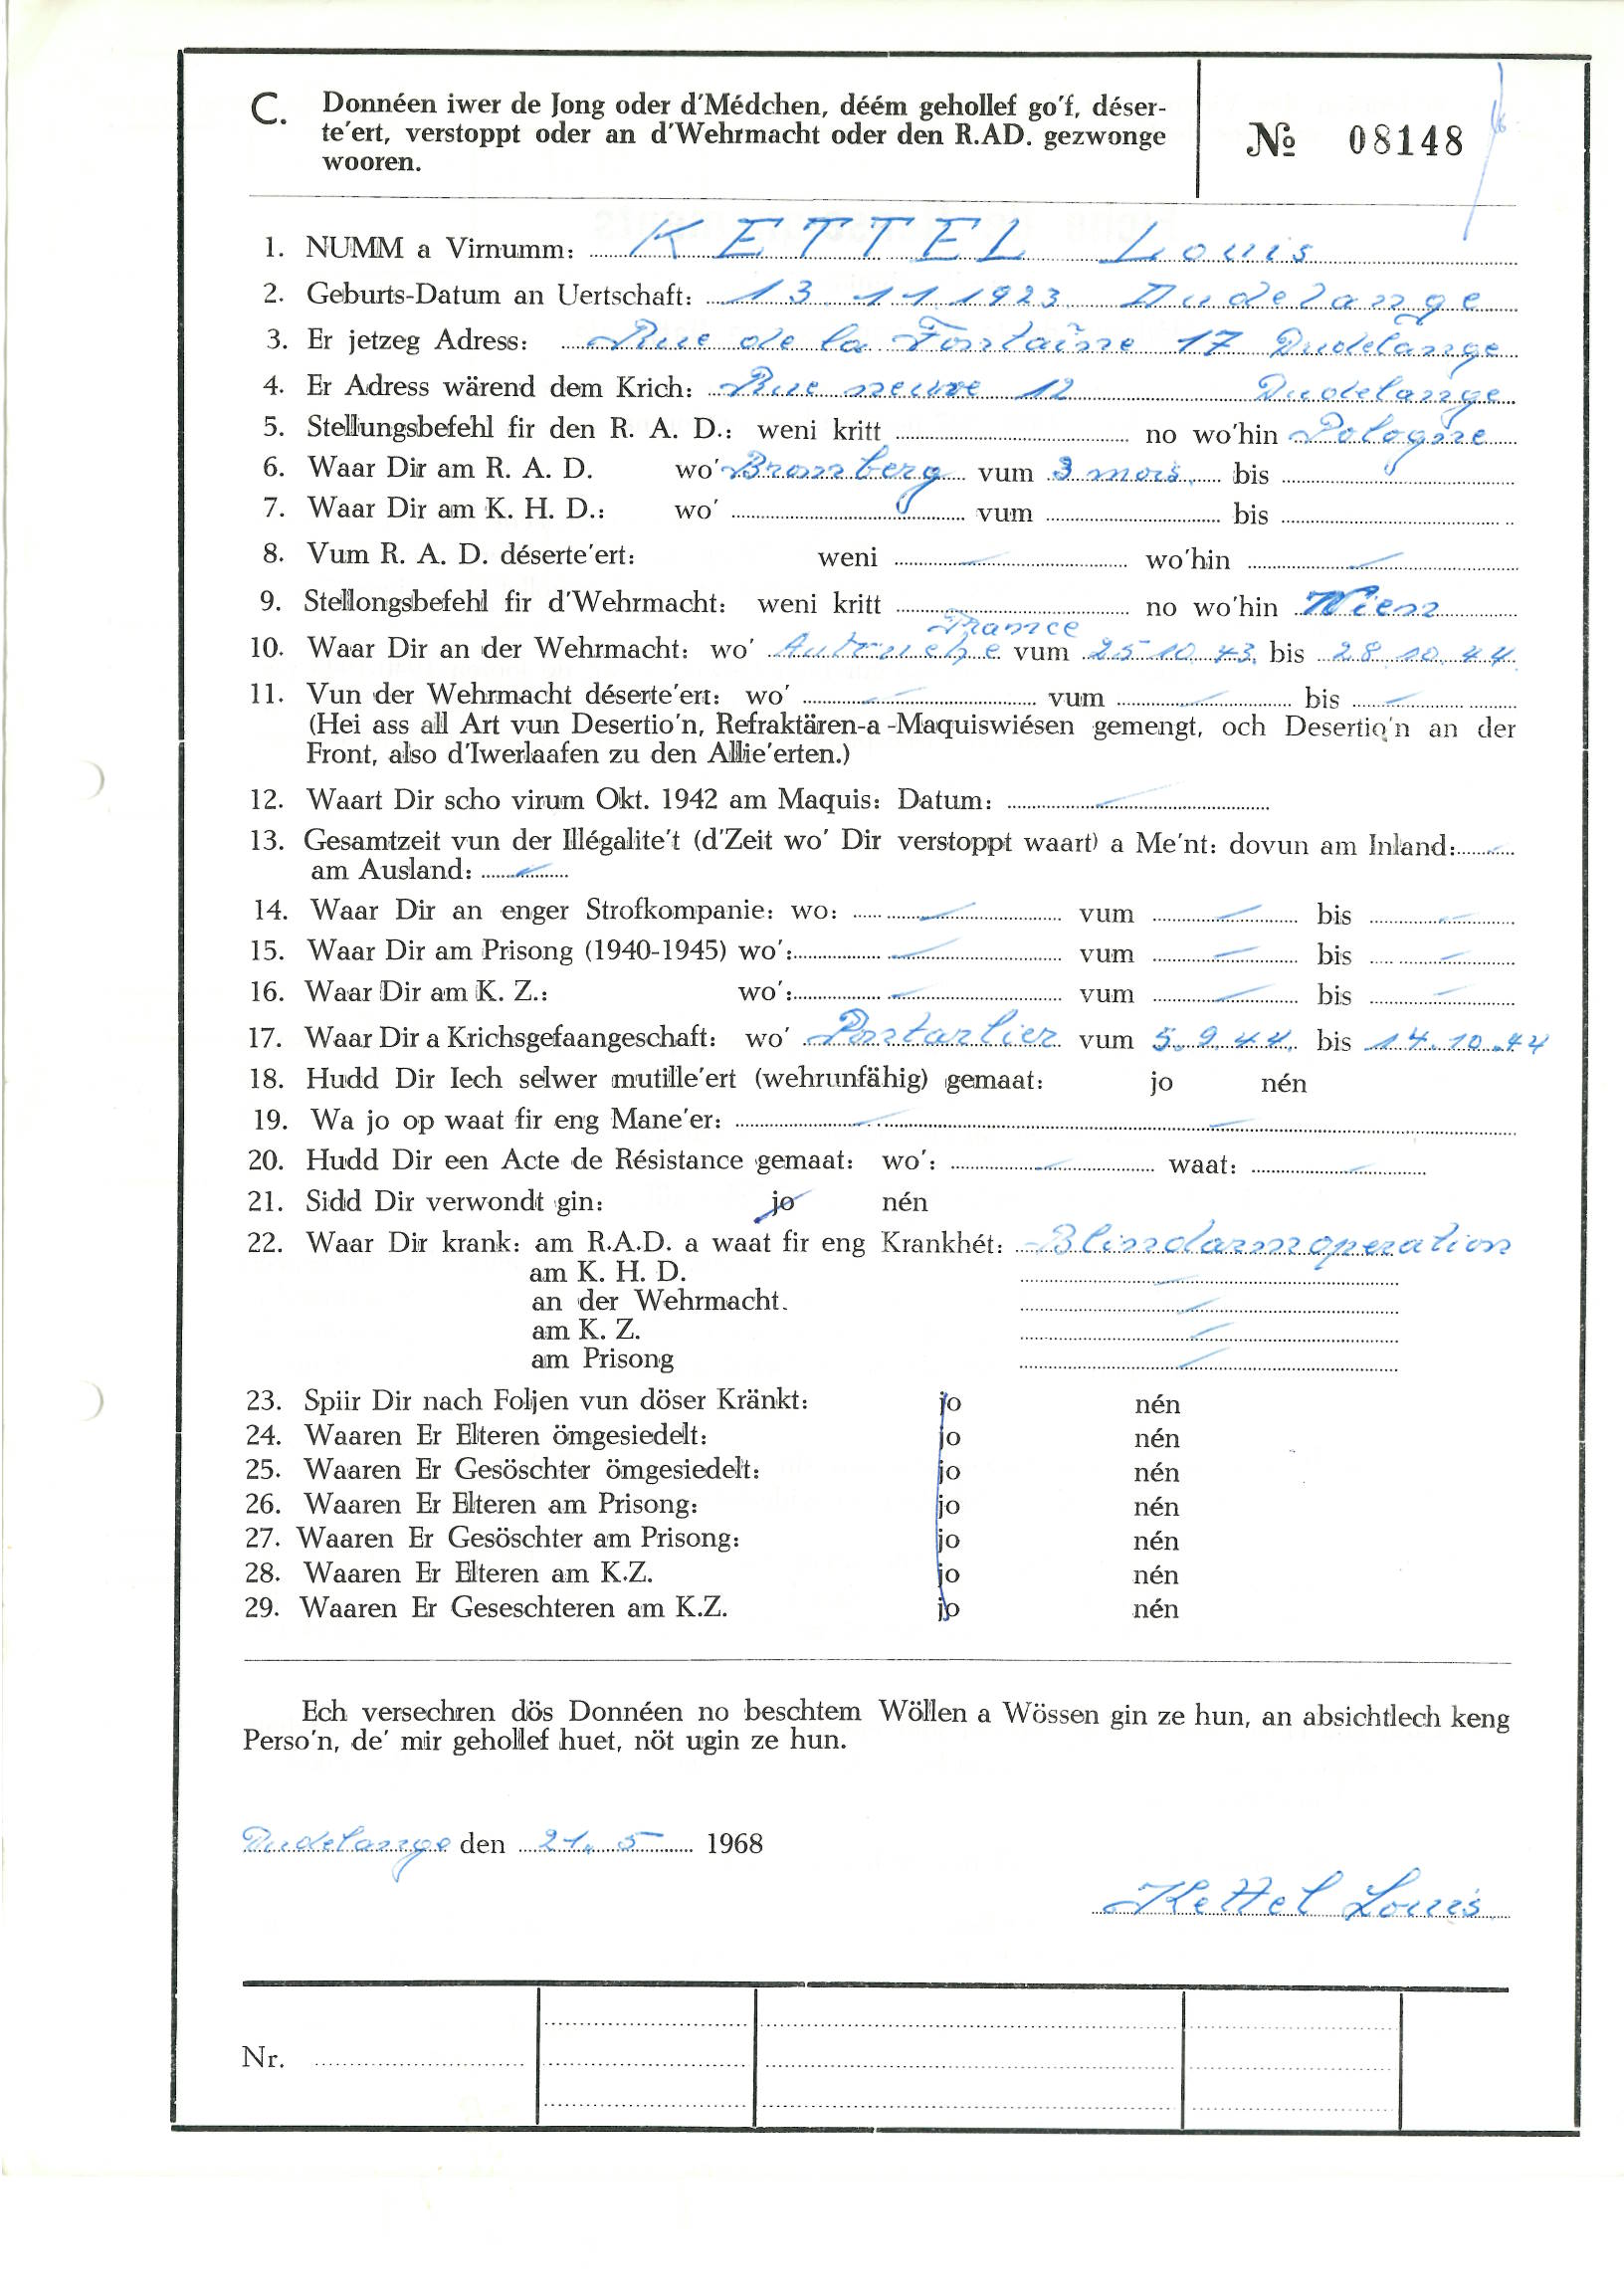 C. Donnéen iwer de Jong oder d'Médchen, déém gehollef go'f, déser-
te'ert, verstoppt oder an d'Wehrmacht oder den R.AD. gezwonge
wooren.
№ 08148
1. NUMM a Virnumm: KETTEL Louis
2. Geburts-Datum an Uertschaft: 13 11 1923 Dudelange
3. Er jetzeg Adress: Rue de la Fontaine 17 Dudelange
4. Er Adress wärend dem Krich: Rue neuve 12 Dudelange
5. Stellungsbefehl fir den R. A. D.: weni kritt no wo'hin Pologne
6. Waar Dir am R. A. D. wo' Bromberg vum 3 mois. bis
7. Waar Dir am K. H. D.: wo' vum bis
8. Vum R. A. D. déserte'ert: weni wo'hin
9. Stellongsbefehl fir d'Wehrmacht: weni kritt no wo'hin Wien
France
10. Waar Dir an der Wehrmacht: wo' Autriche vum 25 10 43. bis 28 10 44.
11. Vun der Wehrmacht déserte'ert: wo' vum bis
(Hei ass all Art vun Desertio'n, Refraktären-a-Maquiswiésen gemengt, och Desertio'n an der
Front, also d'Iwerlaafen zu den Allie'erten.)
12. Waart Dir scho virum Okt. 1942 am Maquis: Datum:
13. Gesamtzeit vun der Illégalite't (d'Zeit wo' Dir verstoppt waart) a Me'nt: dovun am Inland:
am Ausland:
14. Waar Dir an enger Strofkompanie: wo: vum bis
15. Waar Dir am Prisong (1940-1945) wo': vum bis
16. Waar Dir am K. Z.: wo': vum bis
17. Waar Dir a Krichsgefaangeschaft: wo' Pontarlier vum 5. 9. 44. bis 14.10.44
18. Hudd Dir Iech selwer mutille'ert (wehrunfähig) gemaat: jo nén
19. Wa jo op waat fir eng Mane'er:
20. Hudd Dir een Acte de Résistance gemaat: wo': waat:
21. Sidd Dir verwondt gin: jo nén
22. Waar Dir krank: am R.A.D. a waat fir eng Krankhét: Blindarmoperation
am K. H. D.
an der Wehrmacht.
am K. Z.
am Prisong
23. Spiir Dir nach Foljen vun döser Kränkt: jo nén
24. Waaren Er Elteren ömgesiedelt: jo nén
25. Waaren Er Gesöschter ömgesiedelt: jo nén
26. Waaren Er Elteren am Prisong: jo nén
27. Waaren Er Gesöschter am Prisong: jo nén
28. Waaren Er Elteren am K.Z. jo nén
29. Waaren Er Geseschteren am K.Z. jo nén
Ech versechren dös Donnéen no beschtem Wöllen a Wössen gin ze hun, an absichtlech keng
Perso'n, de' mir gehollef huet, nöt ugin ze hun.
Dudelange den 21. 5 1968
Kettel Louis
Nr.